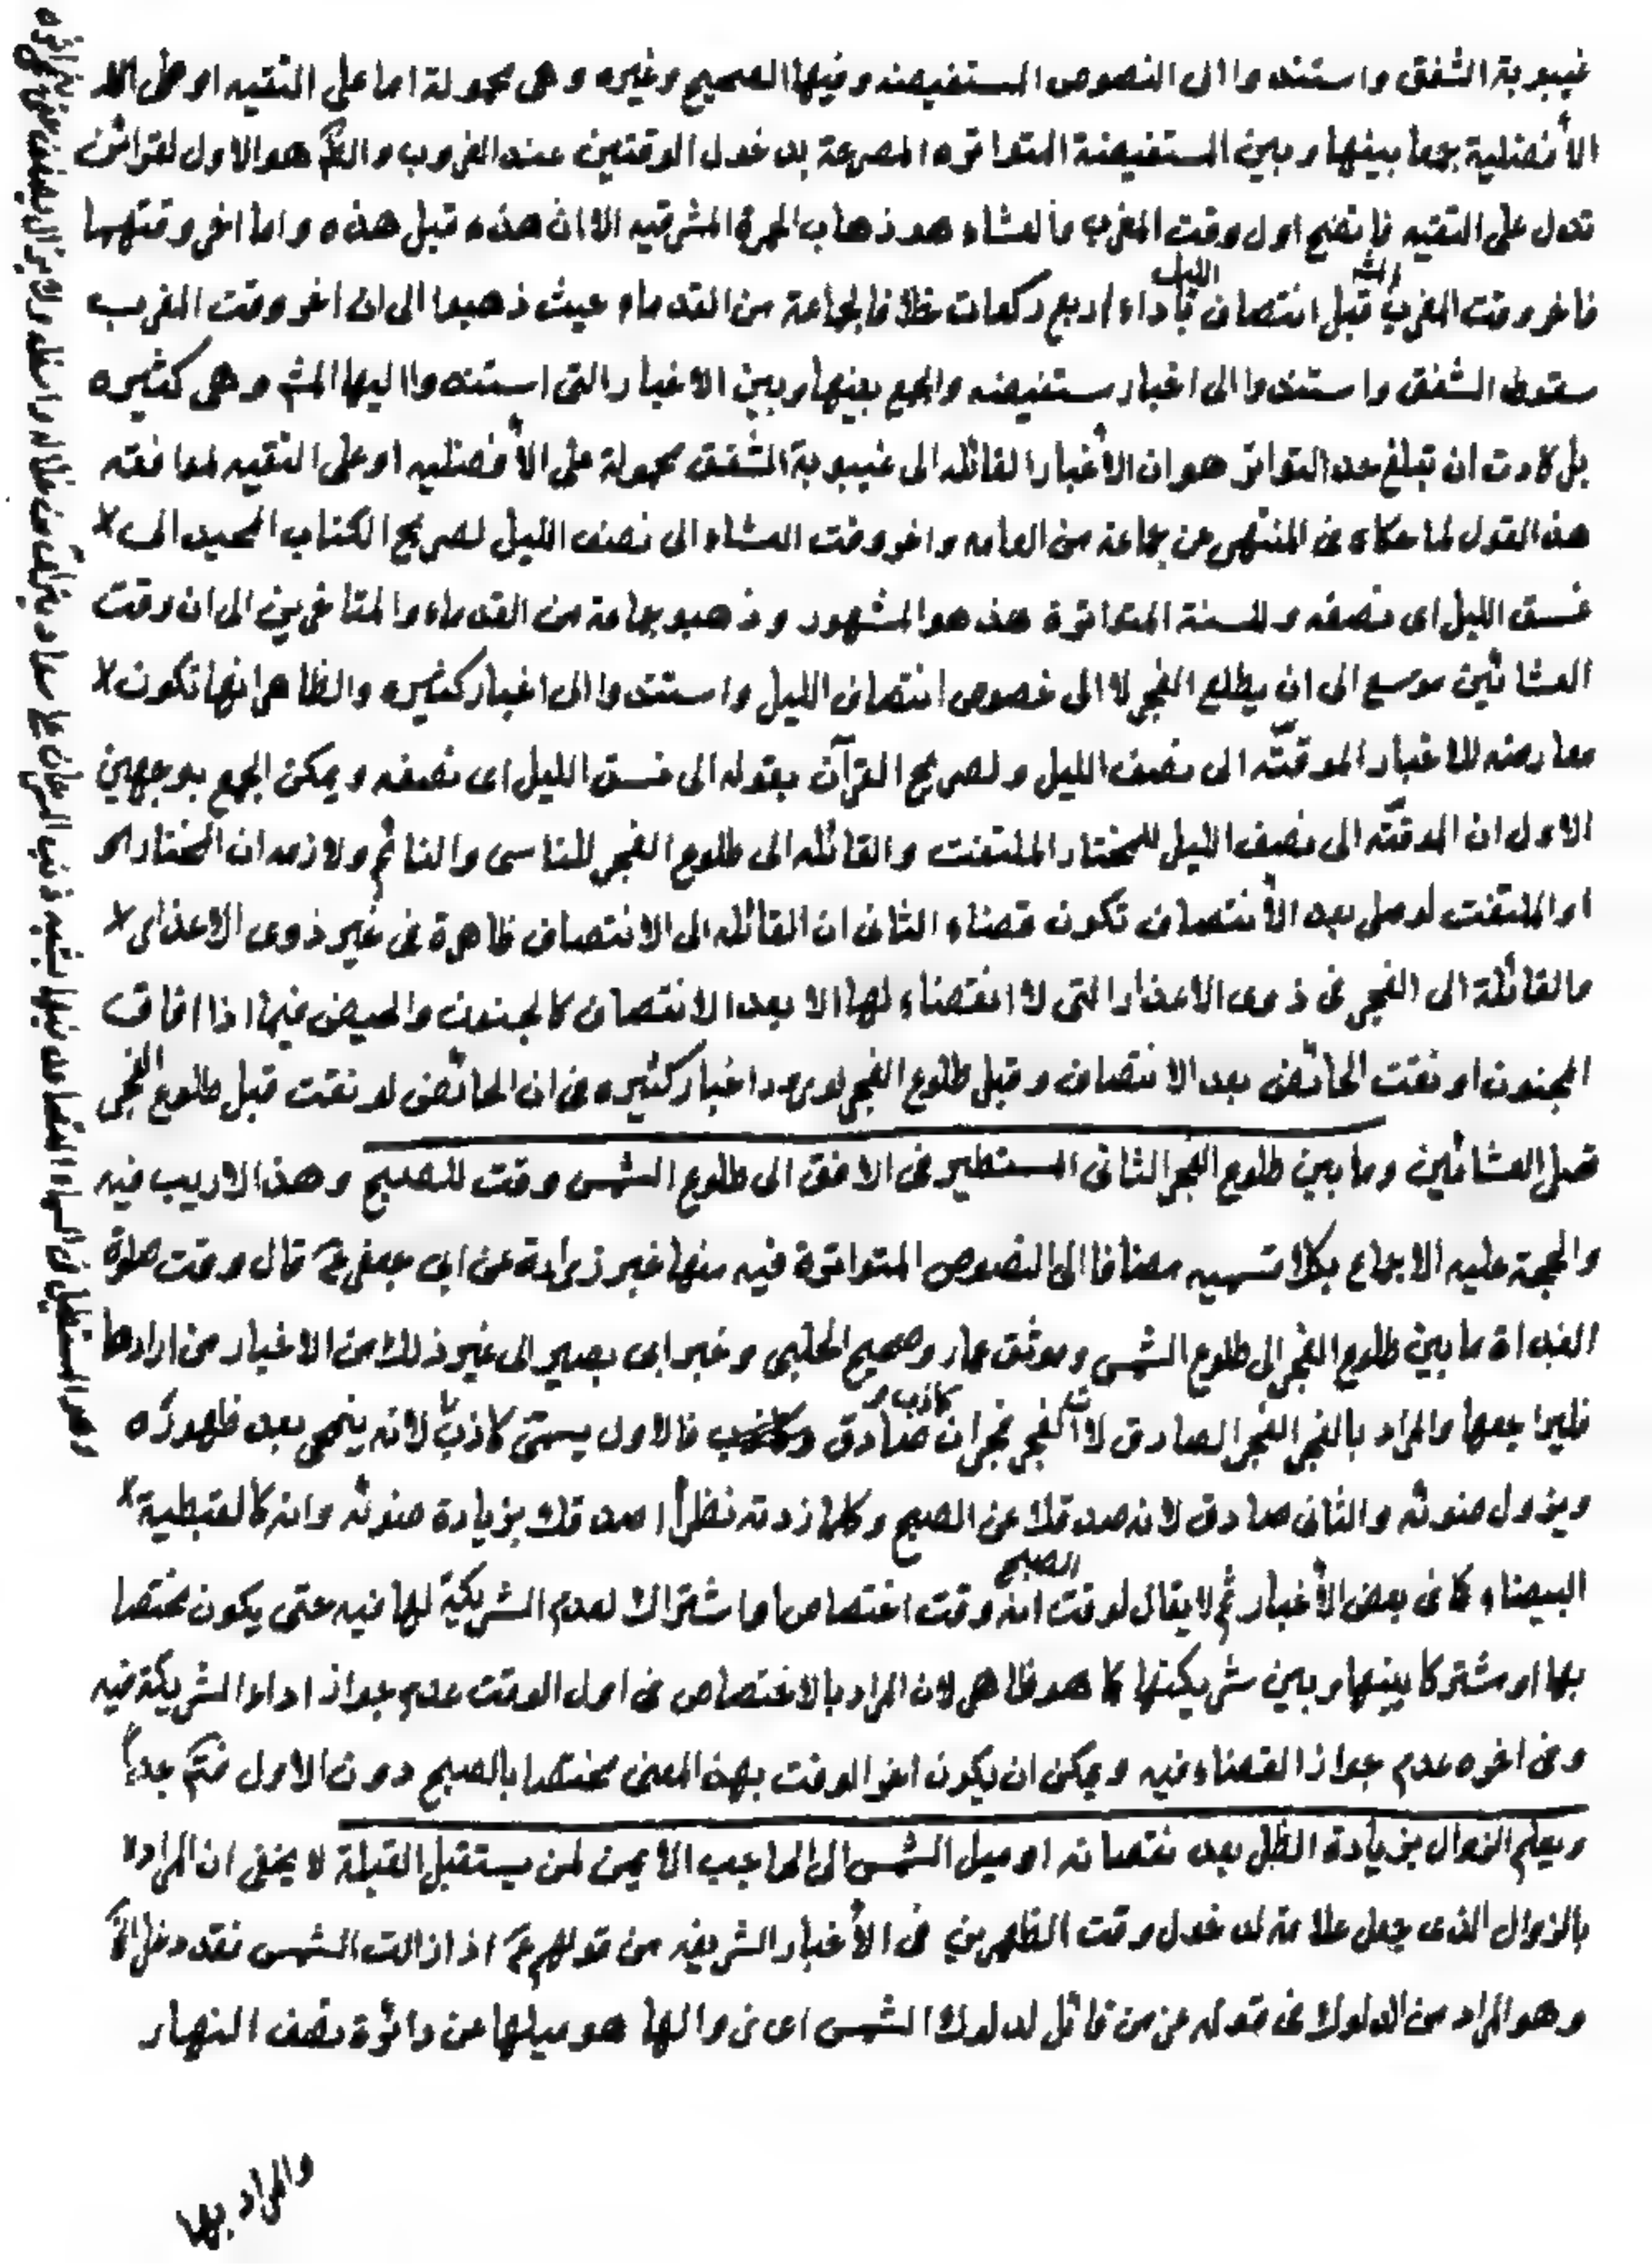 غيبوبة الشفق واستندوا الى النصوص المستفيضه وفيها الصحيح وغيره وهى محمولة اما على التقيه او على
الأفضلية جمعا بينها وبين المستفيضة المتواتره المصرحة بدخول الوقتين عند الغروب و هو الاول لقرائن
تدل على التقيه فإتضح اول وقت المغرب فالعشاء هو ذهاب الحمرة المشرقيه الا ان هذه قبل هذه واما اخر وقتهما
فاخر وقت المغرب قبل انتصاف الليل بأداء اربع ركعات خلافا لجماعة من القدماء حيث ذهبوا الى ان اخر وقت المغرب
سقوط الشفق واستندوا الى اخبار مستفيضه والجمع بينها وبين الاخبار التى استندوا اليها المش وهى كثيره
بل كادت ان تبلغ حد التواتر هو ان الأخبار القائله الى غيبوبة الشفق محمولة على الأفضليه او على التقيه لموافقه
هذ القول لما حكاه فى المنتهى عن جماعة من العامه واخر وقت العشاء الى نصف الليل لصريح الكتاب المجيد الى
غسق الليل اى نصفه وللسنة المتواترة هذ هو المشهور وذهبو جماعة من القدماء والمتاخرين الى ان وقت
العشائين موسع الى ان يطلع الفجر لا الى خصوص انتصاف الليل واستندوا الى اخبار كثيره والظاهر انها تكون
معارضه للاخبار الموقّته الى نصف الليل ولصريح القرآن بقوله الى غسق الليل اى نصفه ويمكن الجمع بوجهين
الاول ان الموقّته الى نصف الليل للمختار الملتفت والقائله الى طلوع الفجر للناسى والنائم ولازمه ان المختار
او الملتفت لو صلى بعد الأنتصاف تكون قضاء الثانى ان القائله الى الانتصاف ظاهرة فى غير ذوى الاعذار
فالقائلة الى الفجر فى ذوى الاعذار التى لا انقضاء لها الا بعد الانتصاف كالجنون والحيض فيما اذا افاق
المجنون او نقت الحائض بعد الانتصاف وقبل طلوع الفجر لورود اخبار كثيره فى ان الحائض لو نقت قبل طلوع الفجر
تصل العشائين وما بين طلوع الفجر الثانى المستطير فى الافق الى طلوع الشمس وقت للصبح وهذ لاريب فيه
والحجة عليه الاجماع بكلا قسميه مضافا الى النصوص المتواترة فيه منها خبر زرارة عن ابى جعفر ع قال وقت صلوة
الغداة ما بين طلوع الفجر الى طلوع الشمس وموثق عمار وصحيح الحلبى وخبر ابى بصير الى غير ذلك من الاخبار من ارادها
فليراجعها والمراد بالفجر الفجر الصادق لأن الفجر فجران كاذب و صادق فالاول يسمّى كاذبًا لانه ينمحى بعد ظهوره
ويزول ضوئه والثانى صادق لانه صدقك عن الصبح وكلما زدته نظرًا اصدقك بزيادة ضوئه وانه كالقبطية
البيضاء كما فى بعض الأخبار ثم لا يقال لوقت الصبح انه وقت اختصاص او اشتراك لعدم الشريكة لها فيه حتى يكون مختصا
بها او مشتركا بينها وبين شريكتها كما هو ظاهر لان المراد بالاختصاص فى اول الوقت عدم جواز اداء الشريكة فيه
وفى اخره عدم جواز القضاء فيه ويمكن ان يكون اخر الوقت بهذ المعنى مختصا بالصبح دون الاول جداً
ويعلم الزوال بزيادة الظل بعد نقصانه او ميل الشمس الى الحاجب الأيمن لمن يستقبل القبلة لا يخفى ان المراد
بالزوال الذى جعل علامة لدخول وقت الظهرين فى الأخبار الشريفه من قولهم ع اذا زالت الشمس فقد دخل
وهو المراد من الدلوك فى قوله عز من قائل لدلوك الشمس اى زوالها هو ميلها عن دائرة نصف النهار
والمراد بها